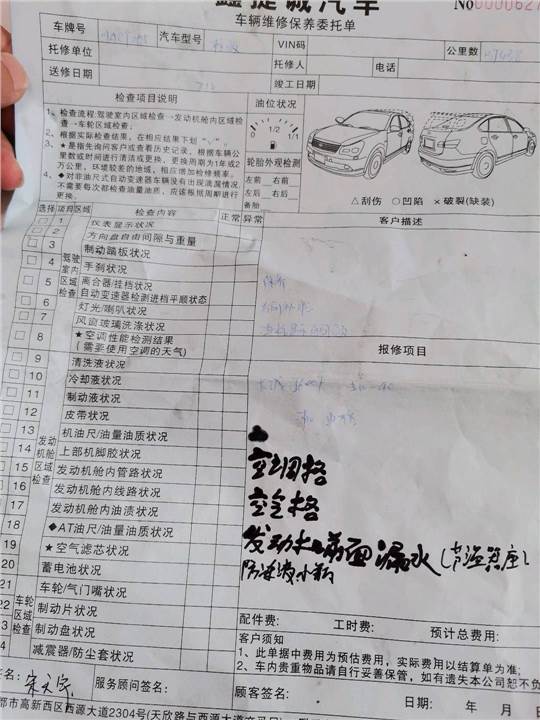 鑫捷诚汽车 No0000627
车辆维修保养委托单
车牌号 汽车型号 VIN码 公里数
托修单位 托修人 电话
送修日期 竣工日期
检查项目说明 油位状况
1、检查流程:驾驶室内区域检查→发动机舱内区域检查→车轮区域检查。
2、根据实际检查结果，在相应结果下划“ ”。
3、★是指先询问客户或查看历史记录，根据车辆公里数或时间进行清洁或更换，更换周期为1年或2万公里，环境较差的地域，相应增加检修频率。
4、◆对非油尺式自动变速器车辆没有出现泄漏情况，不需要每次都检查油量油质，应该根据周期进行更换。
0 1/2 1/1
轮胎外观检测
左前 右前
左后 右后
备胎
△刮伤 ○凹陷 ×破裂(缺装)
选择 项目 区域 检查内容 正常 异常 客户描述
1 仪表显示状况
2 方向盘自由间隙与重量
3 制动踏板状况
4 手刹状况
驾驶室内区域检查
5 离合器/挂档状况
自动变速器检测进档平顺状态
6 灯光/喇叭状况
7 风窗玻璃洗涤状况
8 ★空调性能检测结果
(需要使用空调的天气)
报修项目
9 清洗液状况
10 冷却液状况
11 制动液状况
12 皮带状况
13 机油尺/油量油质状况
14 上部机脚胶状况
发动机舱区域检查
15 发动机舱内管路状况
16 发动机舱内线路状况
17 发动机舱内油渍状况
18 ◆AT油尺/油量油质状况
19 ★空气滤芯状况
20 蓄电池状况
空调格
空气格
发动机前面漏水(节温器座)
防冻液小瓶
21 车轮/气门嘴状况
22 制动片状况
23 制动盘状况
24 减震器/防尘套状况
车轮区域检查
配件费: 工时费: 预计总费用:
客户须知
1、此单据中费用为预估费用，实际费用以结算单为准;
2、车内贵重物品请自行妥善保管，如有遗失本公司恕不负
签名: 服务顾问签名: 顾客签名: 日期: 年 月 日
都市高新西区西源大道2304号(天欣路与西源大道交